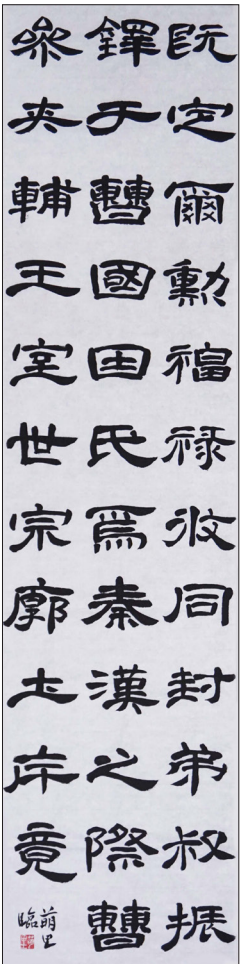 既定爾勳福祿攸同封弟叔振
鐸于曹國因氏焉秦漢之際曹
參夾輔王室世宗廓土斥竟
萌里
臨